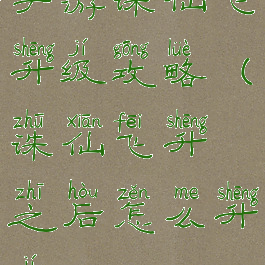 手游诛仙飞
shēng jí gōng lüè
升级攻略（
zhū xiān fēi shēng
诛仙飞升
zhī hòu zěn me shēng
之后怎么升
jí